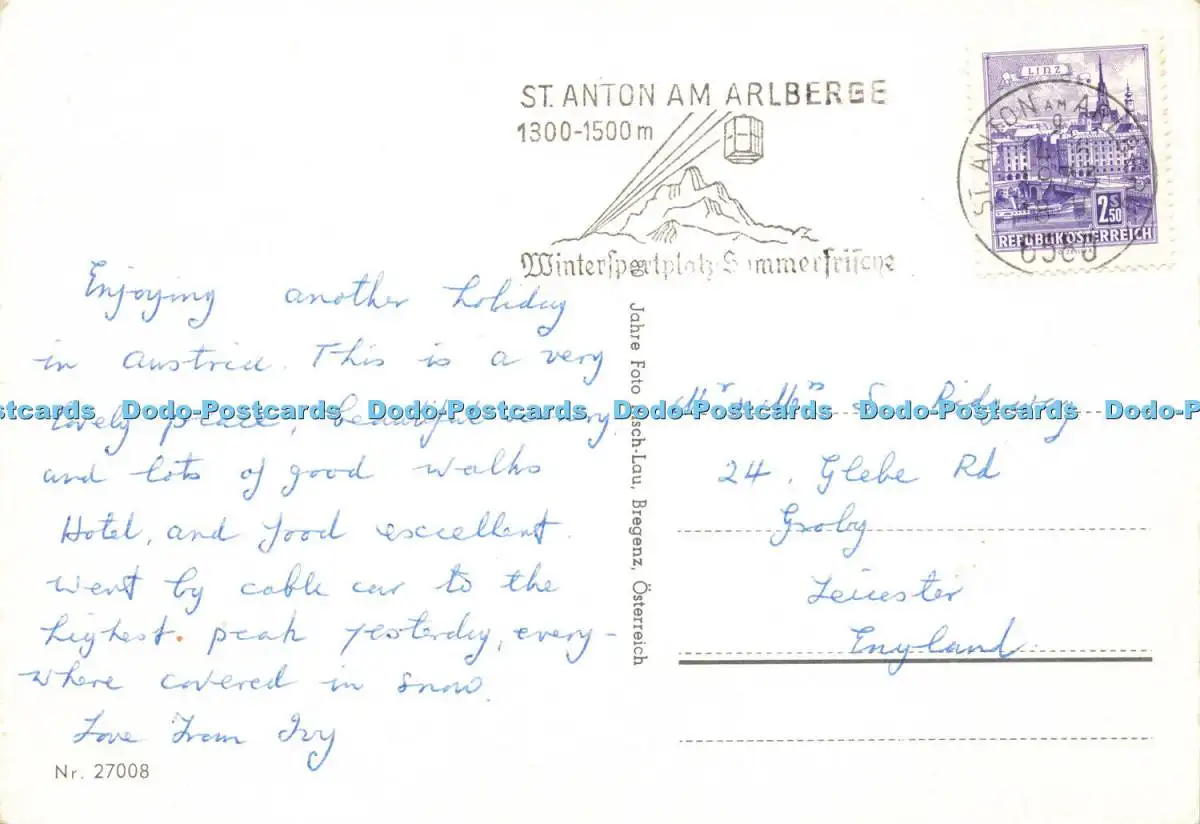 ST. ANTON AM ARLBERGE
1300-1500 m
Wintersportplatz Sommerfrische
LINZ
2 S 50
REPUBLIK ÖSTERREICH
ST. ANTON AM ARLBERG
6580
Enjoying another holiday
in Austria. This is a very
lovely place, beautiful scenery
and lots of good walks
Hotel, and food excellent.
went by cable car to the
highest peak yesterday, every-
where covered in snow.
Love From Ivy
Nr. 27008
Jahre Foto Risch-Lau, Bregenz, Österreich
Mr & Mrs S. Ridgway
24. Glebe Rd
Groby
Leicester
England
Dodo-Postcards Dodo-Postcards Dodo-Postcards Dodo-Postcards Dodo-Postcards